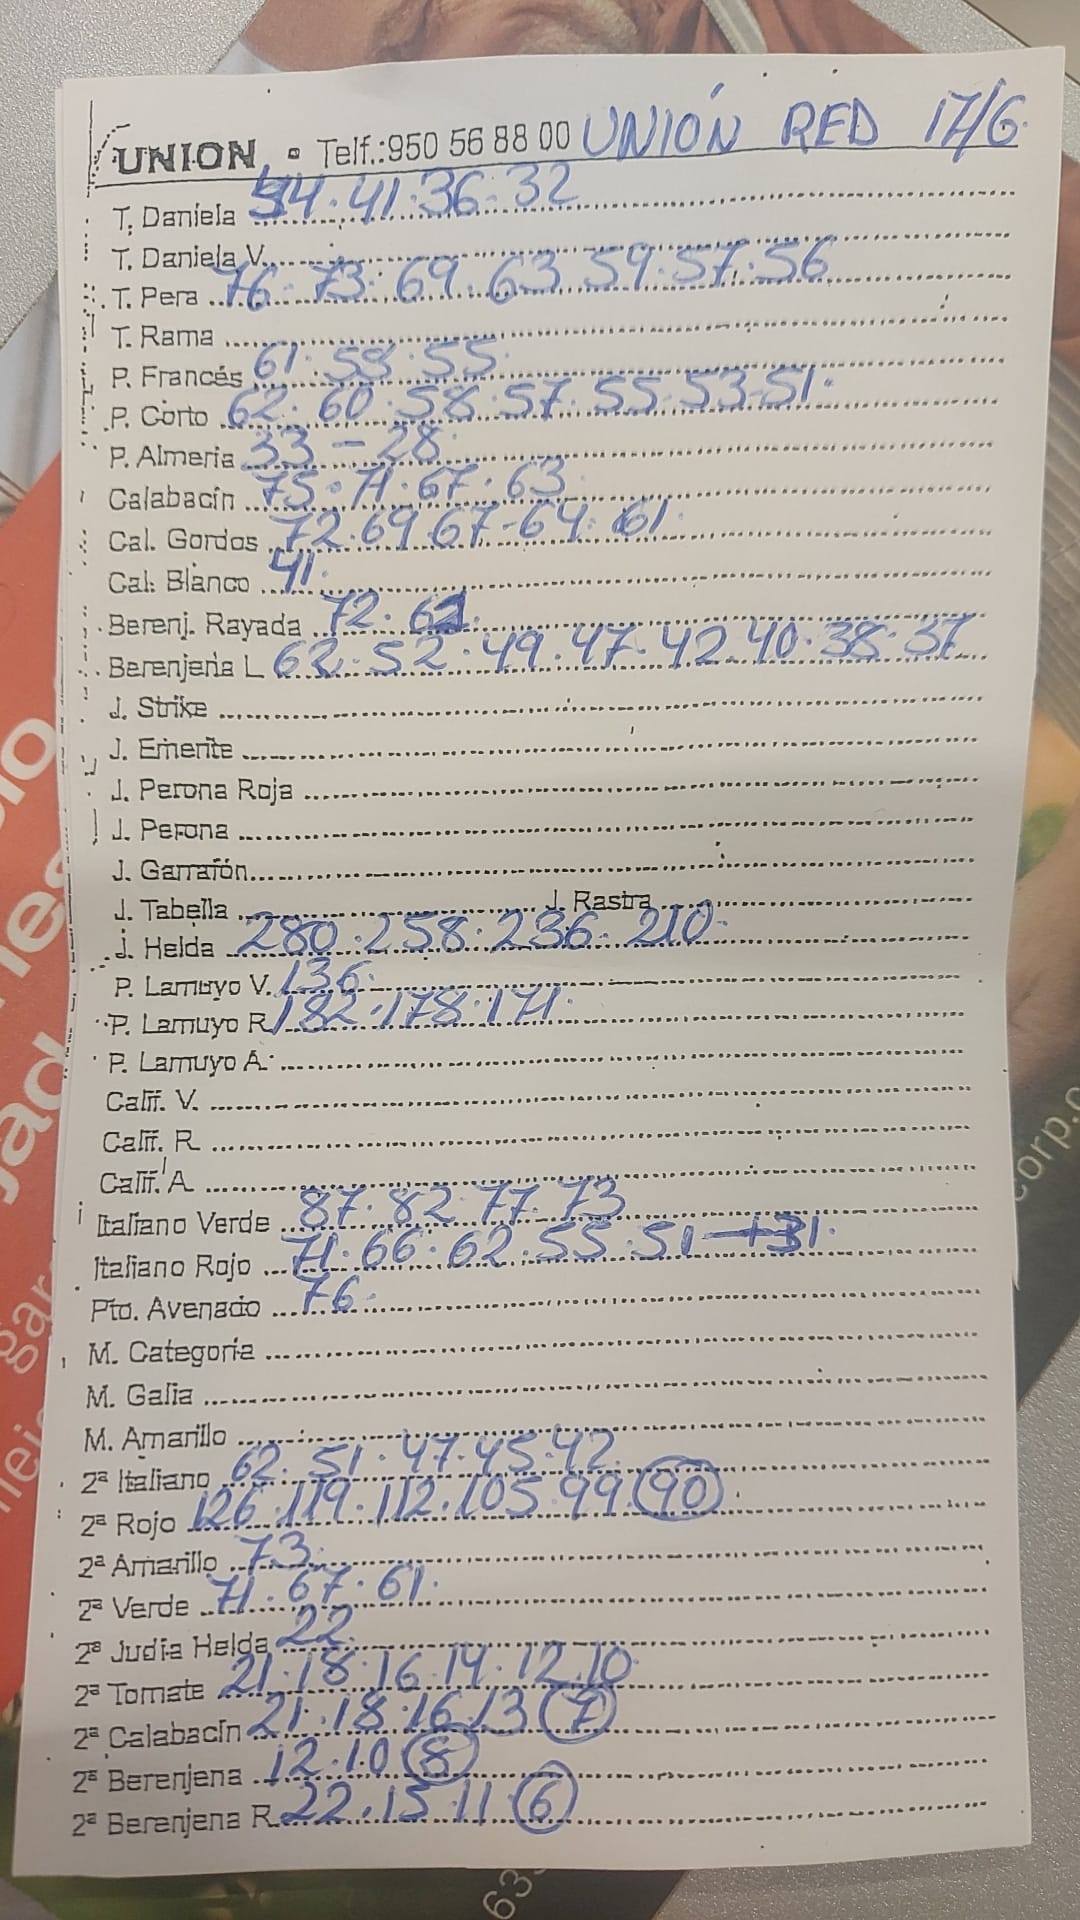 UNION • Telf.:950 56 88 00 UNIÓN RED 17/6.
T. Daniela 54.41.36.32
T. Daniela V.
T. Pera 76.73.69.63.59.57.56
T. Rama
P. Francés 61.58.55.
P. Corto 62.60.58.57.55.53-51.
P. Almeria 33 - 28.
Calabacín 75.71.67.63.
Cal. Gordos 72.69.67-64.61.
Cal. Blanco 41.
Berenj. Rayada 72.62.
Berenjena L 62.52.49.47.42.40.38.37
J. Strike
J. Emerite
J. Perona Roja
J. Perona
J. Garrafón
J. Tabella J. Rastra
J. Helda 280.258.236.210.
P. Lamuyo V. 136.
P. Lamuyo R. 182.178.171.
P. Lamuyo A.
Calif. V.
Calif. R
Calif. A
Italiano Verde 87.82.77.73
Italiano Rojo 71.66.62.55.51 31.
Pto. Avenado 76.
M. Categoría
M. Galia
M. Amarillo
2ª Italiano 62.51.47.45.42.
2ª Rojo 126.119.112.105.99.90.
2ª Amarillo 73.
2ª Verde 71.67.61.
2ª Judía Helda 22.
2ª Tomate 21.18.16.14.12.10.
2ª Calabacín 21.18.16.13 7
2ª Berenjena 12.10 8
2ª Berenjena R. 22.15.11 6
corp.
63